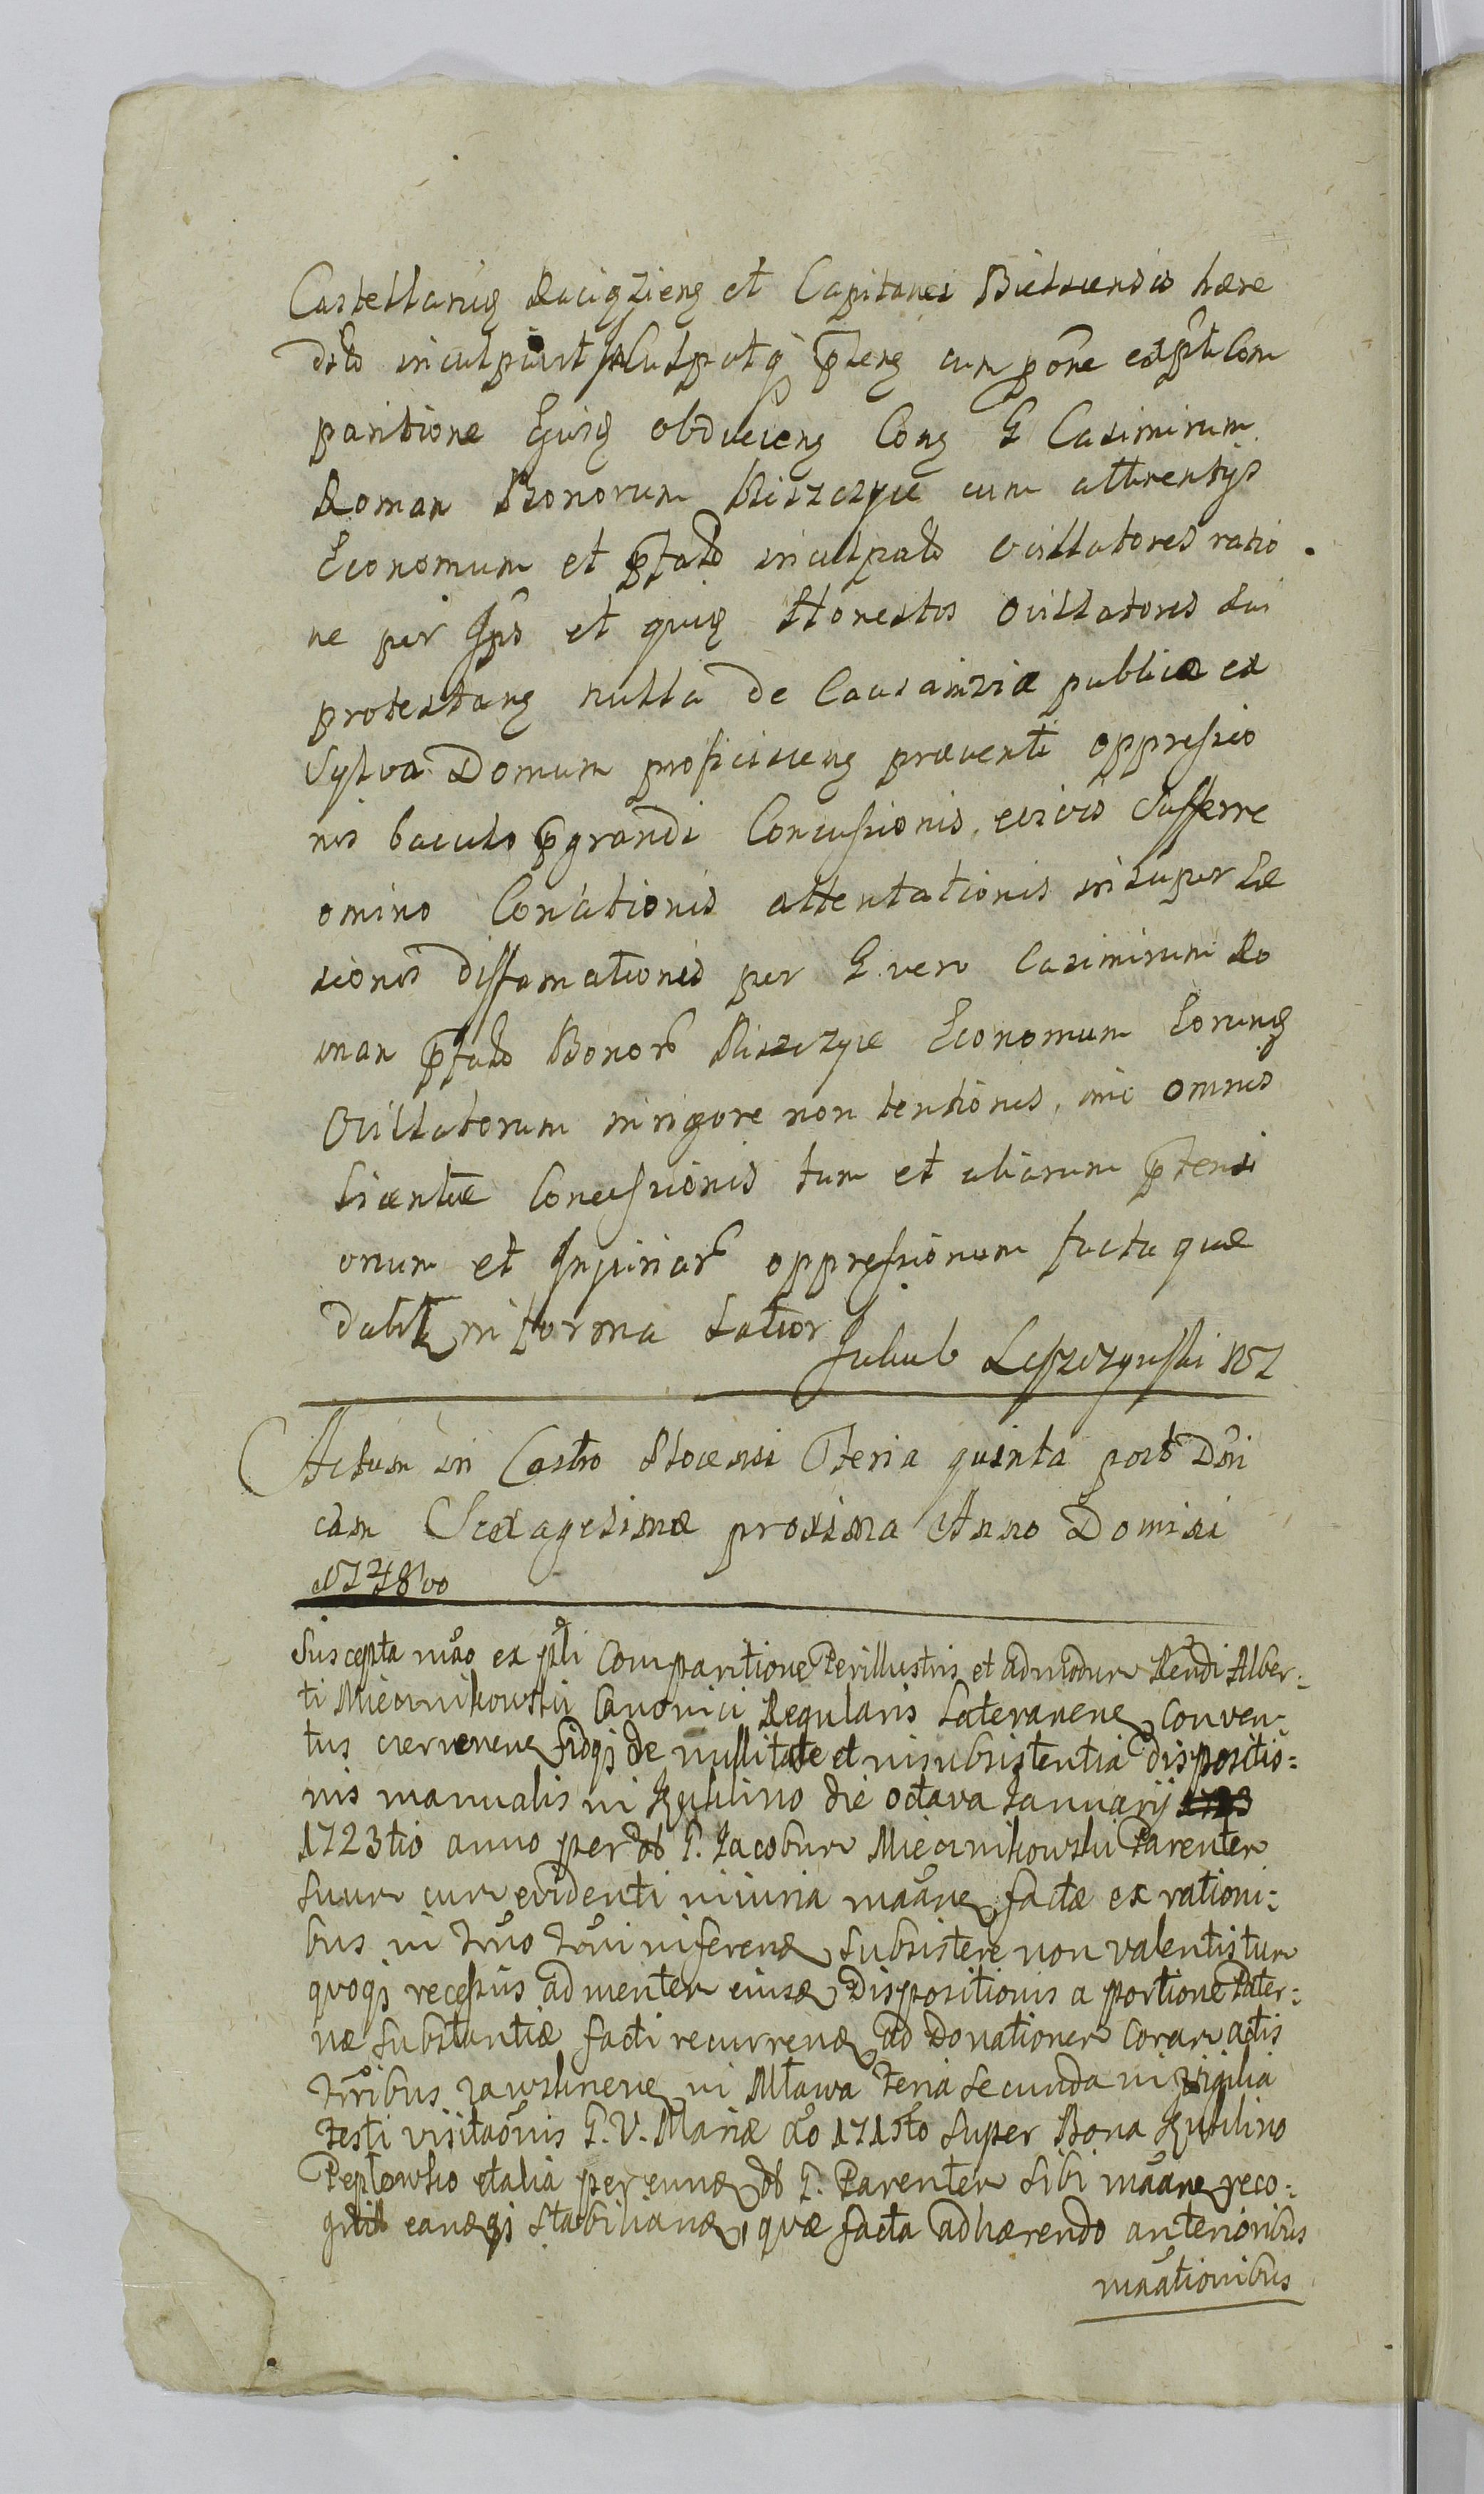 Castellanus Raciązieng et Capitanei Bielscensis hære
dits inculpavit Inculpatq p̃teng cum põne ex pti Com
paritione Ejusq obducieng Cong G Casimirum
Roman Bonorum Miszczyce cum attinentys
Economum et p̃fatos inculpatos ovillatores ratio
ne per Ips̃ et quiq Honestos Ovillatores sui
protestang nulla de Causa in via publica ex
Sylva Domum proficisceng præventi oppressio
nis baculo p̃grandi Concussionis, eisvis Sufferre
omino Conationis attentationis insuper Læ
sionis diffamationis per G. vero Casimirum Ro
man p̃fatos Bonor̃ Miszczyce Economum Eorumq
Ovillatorum in rigore non tentionis, imo omnis
licentiæ Concussionis tum et aliarum p̃tensi
onum et Injuriar̃ oppressionum facta quæ
dabit in forma latior
Jakub Leszczynski
Actum in Castro Plocensi Feria quinta post Dñi
cam Sexagesimæ proxima Anno Domini
Suscepta mão ex pti Comparitione Perillustris et admodum Rendi Alber:
ti Miecznikowski Canonici Regularis Lateranene, Conven-
tus czervenene fidqj de nullitate et insubsistentia dispositio:
nis manualis in Kuklino die octava January
1723tio anno per olb G. Jacobum Miecznikowski Parentem
suum cum evidenti iniuria maãne, factæ ex rationi:
bus in trño trñi inferenæ subsistere non valentis tum
quoqj recessus ad mentem eiusæ Dispositionis a portione Pater:
næ substantiæ facti recurrenæ ad Donationem coram actis
trñribus zawskrnene in Mława feria secunda in vigilia
festi visitaõnis B. V. Mariæ aõ 1715to super Bona Kuklino
Peplowko et alia per eunæ olb G. Parentem sibi maãne reco:
gnit eanæqj stabilianæ, quæ facta adhærendo anterioribus
maãtionibus